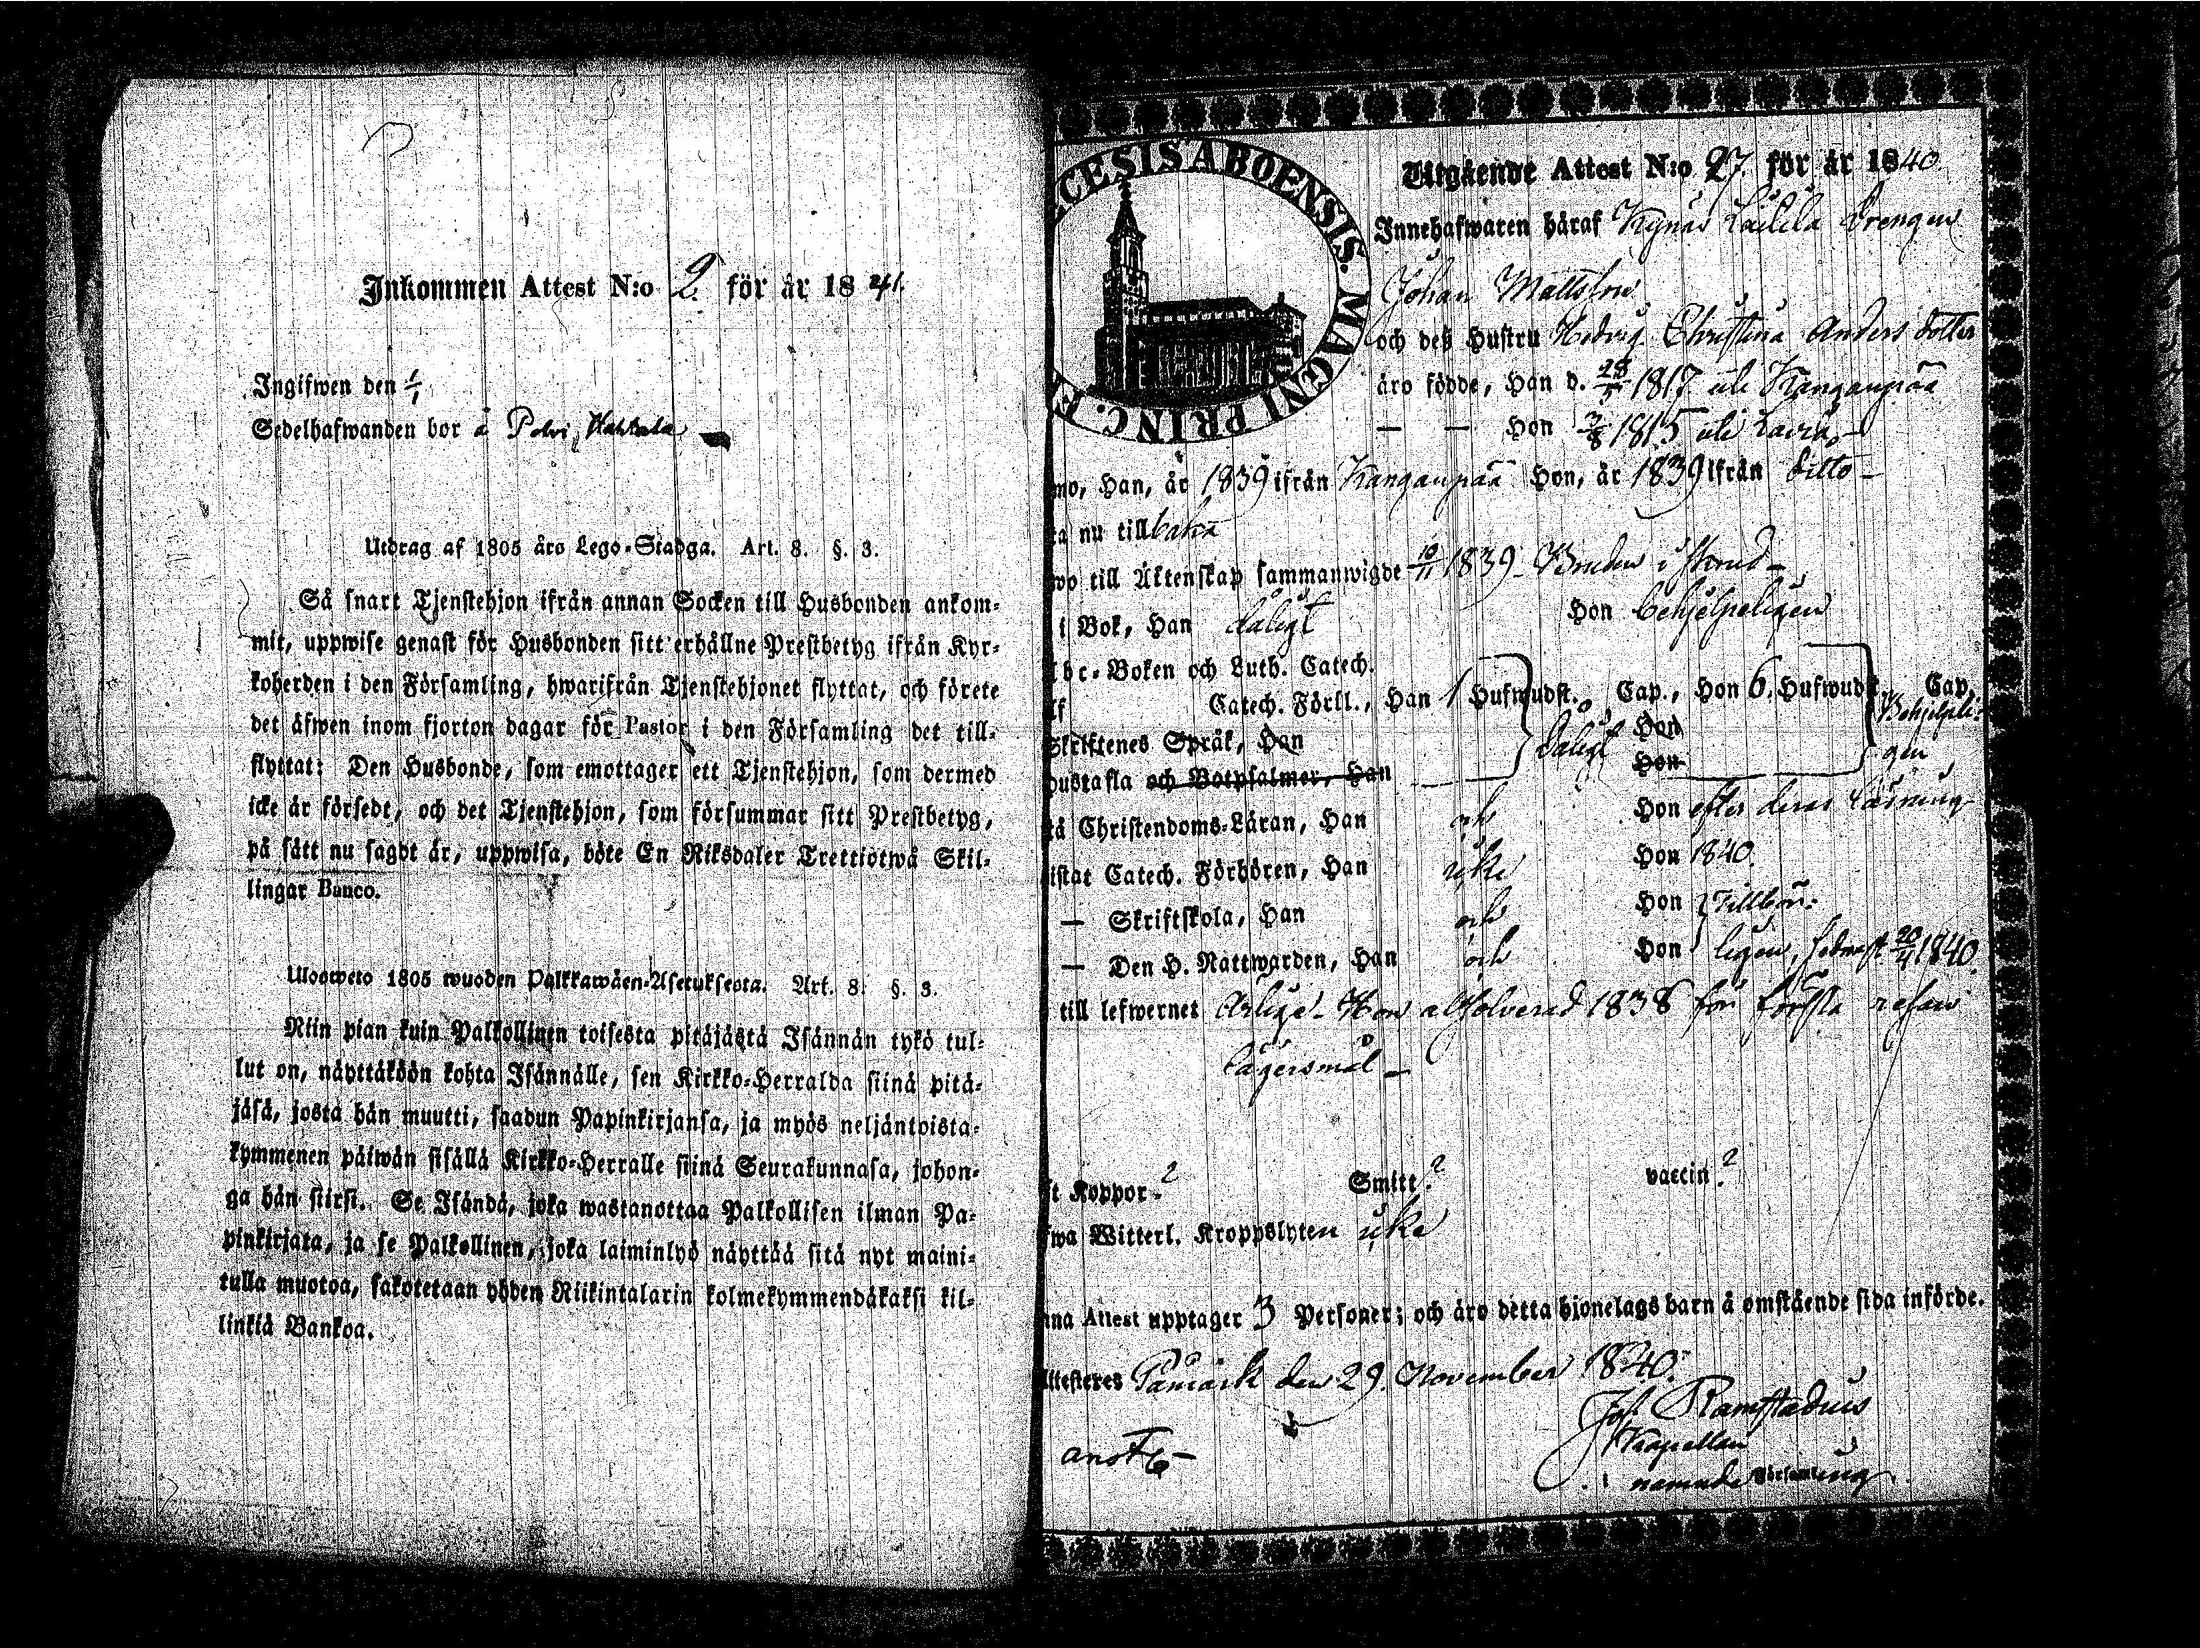 Inkommen Attest N:o 2. för år 1841.
Ingifwen den 1/1
Sedelhafwanden bor å Polvi, Hahkala
Utdrag af 1805 års Lego-Stadga. Art. 8. §. 3.
Så snart Tjenstehjon ifrån annan Socken till Husbonden ankom-
mit, uppwise genast för Husbonden sitt erhållne Prestbetyg ifrån Kyr-
koherden i den Församling, hwarifrån Tjenstehjonet flyttat, och förete
det äfwen inom fjorton dagar för Pastor i den Församling det till-
flyttat: Den Husbonde, som emottager ett Tjenstehjon, som dermed
icke är försedt, och det Tjenstehjon, som försummar sitt Prestbetyg,
på sätt nu sagdt är, uppwisa, böte En Riksdaler Trettiotwå Skil-
lingar Banco.
Ulosweto 1805 wuoden Palkkawäen-Asetuksesta. Art. 8. §. 3.
Niin pian kuin Palkollinen toisesta pitäjästä Isännän tykö tul-
lut on, näyttäköön kohta Isännälle, sen Kirkko-Herralda siinä pitä-
jäsä, josta hän muutti, saadun Papinkirjansa, ja myös neljäntoista-
kymmenen päiwän sisällä Kirkko-Herralle siinä Seurakunnasa, johon-
ga hän siirsi. Se Isändä, joka wastanottaa Palkollisen ilman Pa-
pinkirjata, ja se Palkollinen, joka laiminlyö näyttää sitä nyt maini-
tulla muotoa, sakotetaan yhden Riikintalarin kolmekymmendäkaksi kil-
linkiä Bankoa.
CESIS ABOENSIS. MAGNI PRINC. F
Utgående Attest N:o 27. för år 1840.
Innehafwaren häraf Kynäs Lailila Drengen
Johan Mattsson
och deß Hustru Hedvig Christina Anders dotter
äro födde, Han d. 28/5 1817 uti Kangaupää
— — Hon 3/8 1815 uti Lavia
mo, Han, år 1839 ifrån Kangaupää Hon, år 1839 ifrån ditto
ta nu tillbaka
wo till Äktenskap sammanwigde 10/11 1839 Bruden i skrud
i Bok, Han dåligt Hon behjelpeligen
Abc-Boken och Luth. Catech.
lf Catech. Förkl., Han 1 Hufwudst. Cap., Hon 6. Hufwudst. Cap.
Skriftenes Språk, Han dåligt Hon Behjelpeli-
Hustafla och Botpsalmer, Han Hon gen
tå Christendoms-Läran, Han och Hon efter deras Läsning
istat Catech. Förhören, Han icke Hon 1840.
— Skriftskola, Han och Hon Tillbör-
— Den H. Nattwarden, Han och Hon ligen, sednast 20/4 1840.
till lefwernet Ärlige. Hon absolverad 1838 för första resan
Lägersmål
t Koppor ? Smitt. ? vaccin. ?
fwa Witterl. Kroppslyten icke
nna Attest upptager 3 Personer; och äro detta hjonelags barn å omstående sida införde.
Attesteres Påmark den 29. November 1840.
Ramstadius
Kapellan
anot.
i namnde Församling